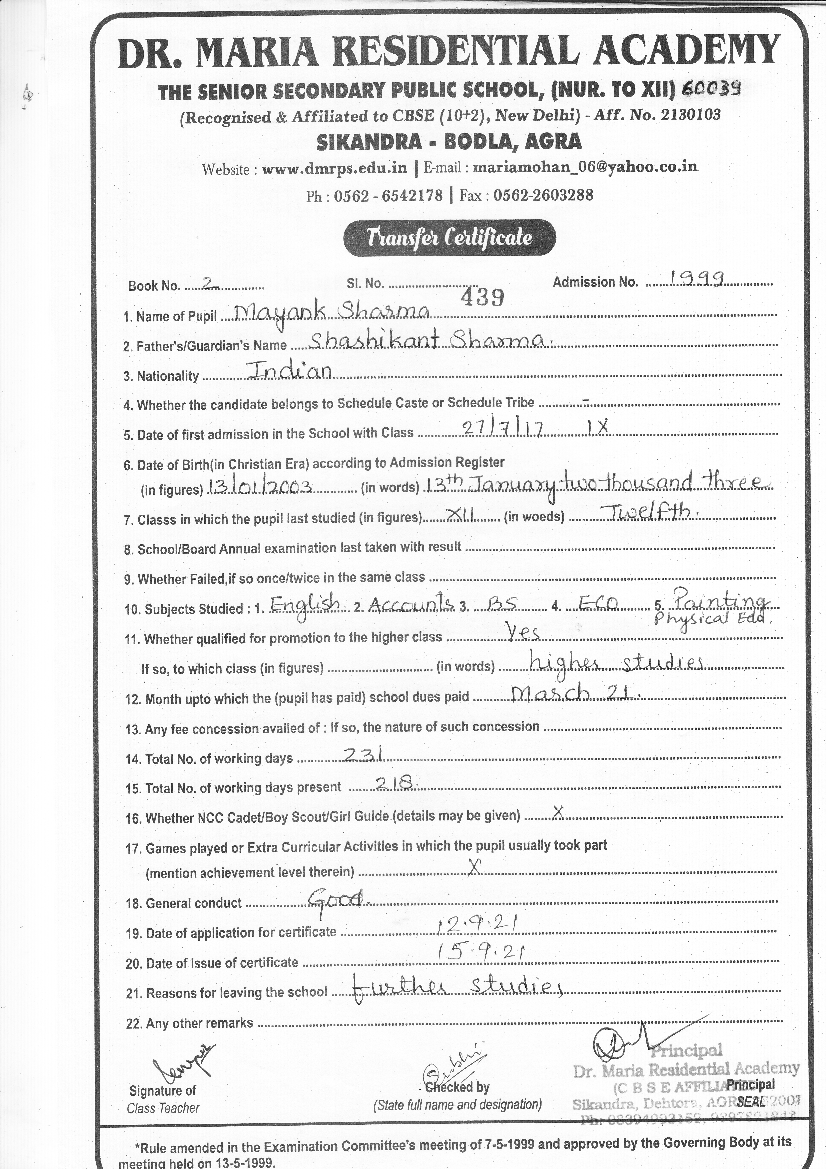 DR. MARIA RESIDENTIAL ACADEMY
THE SENIOR SECONDARY PUBLIC SCHOOL, (NUR. TO XII) 60039
(Recognised & Affiliated to CBSE (10+2), New Delhi) - Aff. No. 2130103
SIKANDRA - BODLA, AGRA
Website : www.dmrps.edu.in | E-mail : mariamohan_06@yahoo.co.in
Ph : 0562 - 6542178 | Fax : 0562-2603288
Transfer Certificate
Book No. 2 Sl. No. 439 Admission No. 1999
1. Name of Pupil Mayank Sharma
2. Father's/Guardian's Name Shashikant Sharma
3. Nationality Indian
4. Whether the candidate belongs to Schedule Caste or Schedule Tribe -
5. Date of first admission in the School with Class 27/7/17 IX
6. Date of Birth(in Christian Era) according to Admission Register
(in figures) 13/01/2003 (in words) 13th January two thousand three
7. Classs in which the pupil last studied (in figures) XII (in woeds) Twelfth.
8. School/Board Annual examination last taken with result
9. Whether Failed,if so once/twice in the same class
10. Subjects Studied : 1. English 2. Accounts 3. BS 4. ECO 5. Painting
Physical Edd.
11. Whether qualified for promotion to the higher class Yes
If so, to which class (in figures) (in words) higher studies
12. Month upto which the (pupil has paid) school dues paid March 21.
13. Any fee concession availed of : If so, the nature of such concession
14. Total No. of working days 231
15. Total No. of working days present 218
16. Whether NCC Cadet/Boy Scout/Girl Guide (details may be given) X
17. Games played or Extra Curricular Activities in which the pupil usually took part
(mention achievement level therein) X
18. General conduct Good
19. Date of application for certificate 12.9.21
20. Date of Issue of certificate 15.9.21
21. Reasons for leaving the school further studies
22. Any other remarks
Principal
Dr. Maria Residential Academy
Signature of Checked by (C B S E AFFILIA Principal
Class Teacher (State full name and designation) Sikandra, SEAL
*Rule amended in the Examination Committee's meeting of 7-5-1999 and approved by the Governing Body at its
meeting held on 13-5-1999.